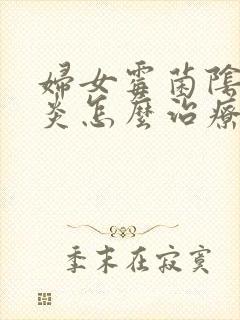 婦女霉菌陰
炎怎麼治療
季末在寂寞